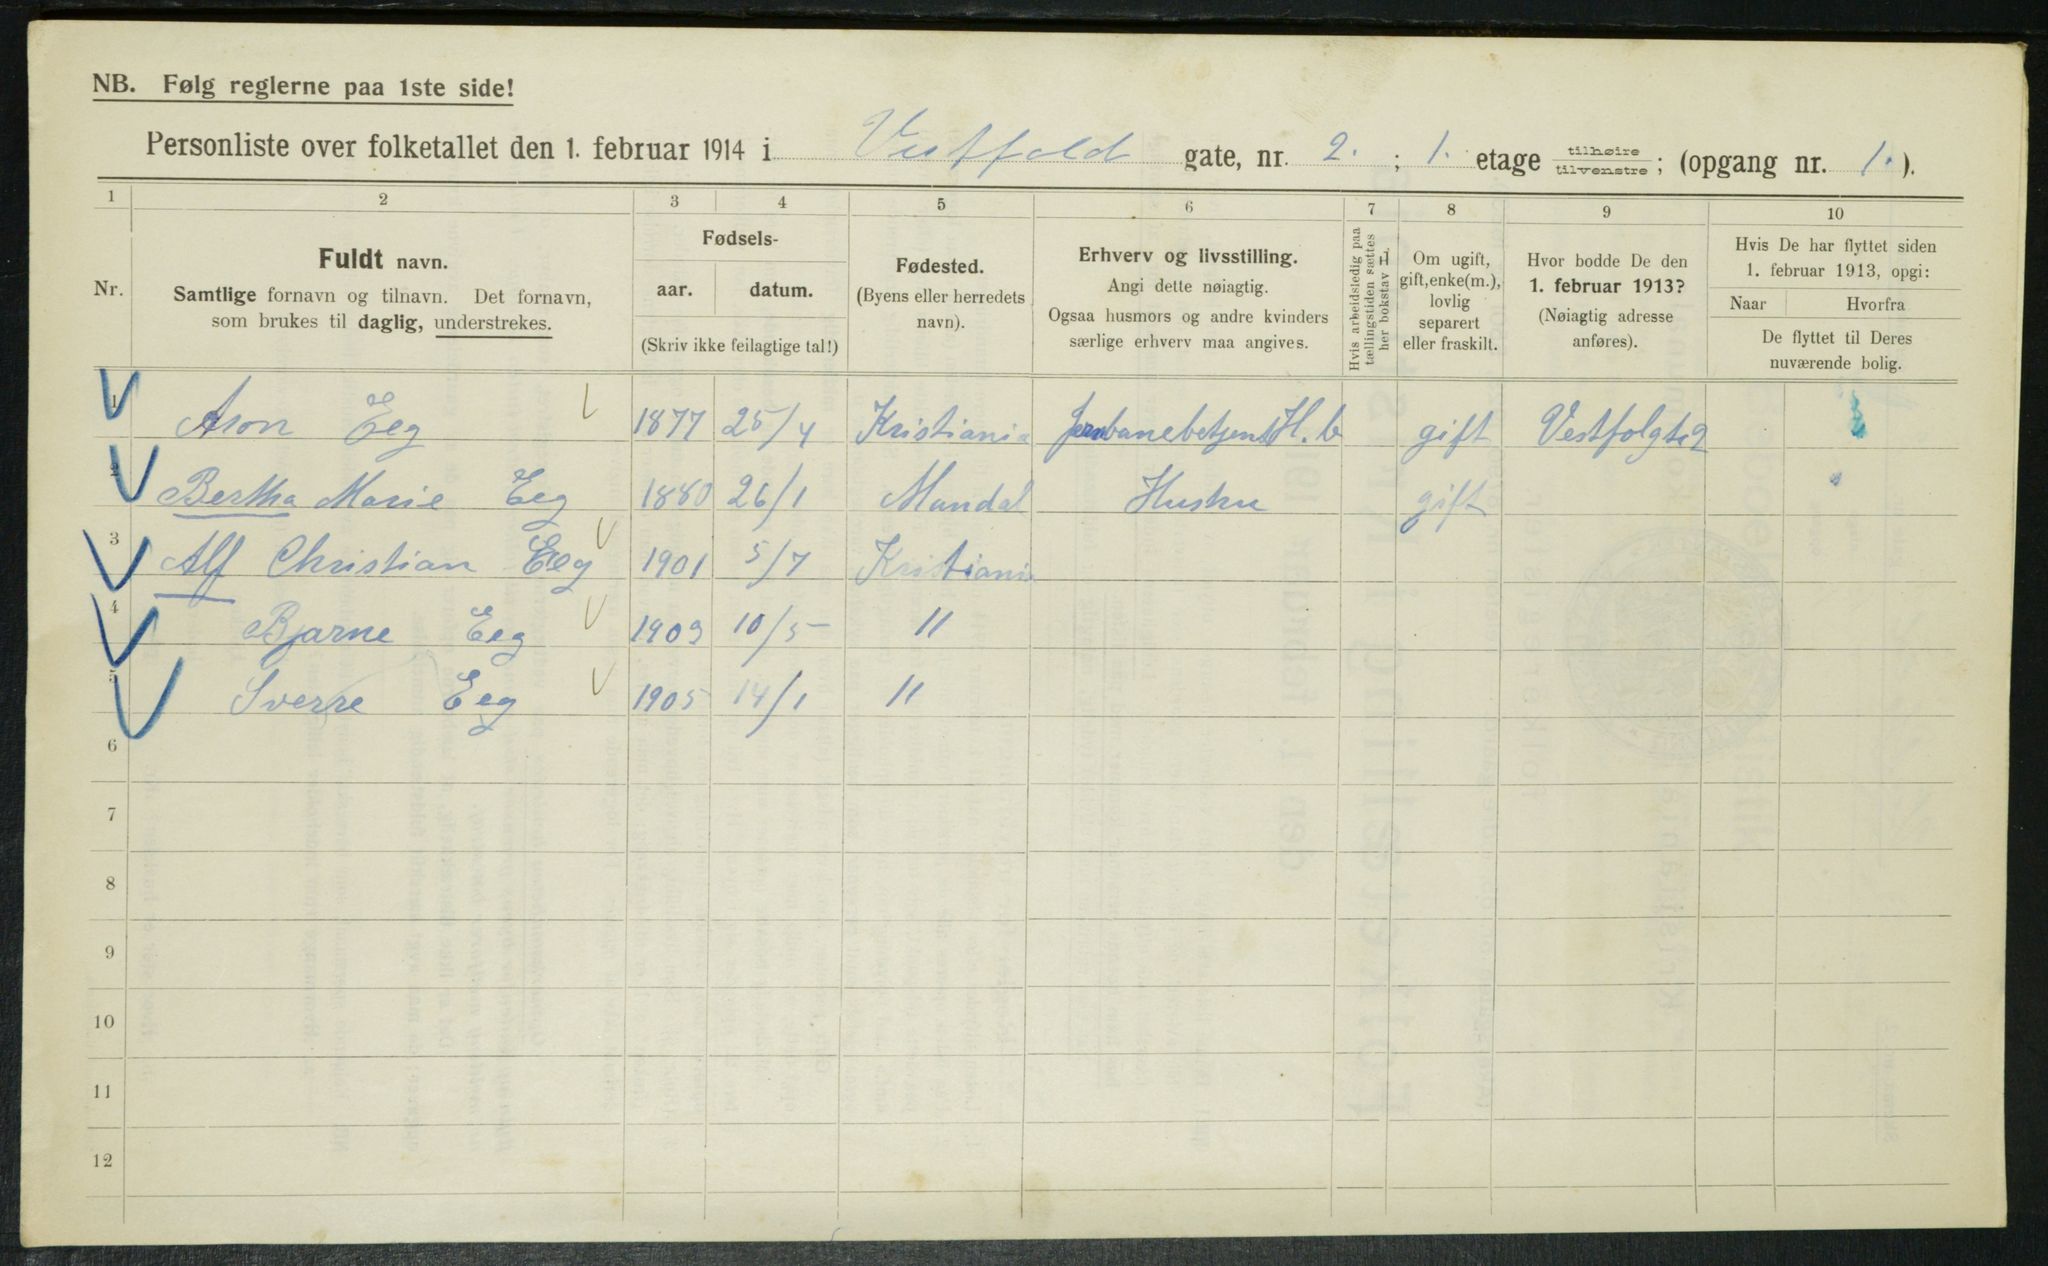 NB. Følg reglerne paa 1ste side!
Personliste over folketallet den 1. februar 1914 i Vestfold gate, nr. 2. ; 1. etage tilhøire / tilvenstre ; (opgang nr. 1. ).
1 2 3 4 5 6 7 8 9 10
Nr.
Fuldt navn.
Samtlige fornavn og tilnavn. Det fornavn,
som brukes til daglig, understrekes.
Fødsels-
aar. datum.
(Skriv ikke feilagtige tal!)
Fødested.
(Byens eller herredets
navn).
Erhverv og livsstilling.
Angi dette nøiagtig.
Ogsaa husmors og andre kvinders
særlige erhverv maa angives.
Hvis arbeidsledig paa
tællingstiden sættes
her bokstav L.
Om ugift,
gift, enke(m.),
lovlig
separert
eller fraskilt.
Hvor bodde De den
1. februar 1913?
(Nøiagtig adresse
anføres).
Hvis De har flyttet siden
1. februar 1913, opgi:
Naar Hvorfra
De flyttet til Deres
nuværende bolig.
1 Aron Eeg 1877 25/4 Kristiania Jernbanebetjent H.b gift Vestfolgt 2
2 Bertha Marie Eeg 1880 26/1 Mandal Hustru gift
3 Alf Christian Eeg 1901 5/7 Kristiania
4 Bjarne Eeg 1903 10/5 "
5 Sverre Eeg 1905 14/1 "
6
7
8
9
10
11
12